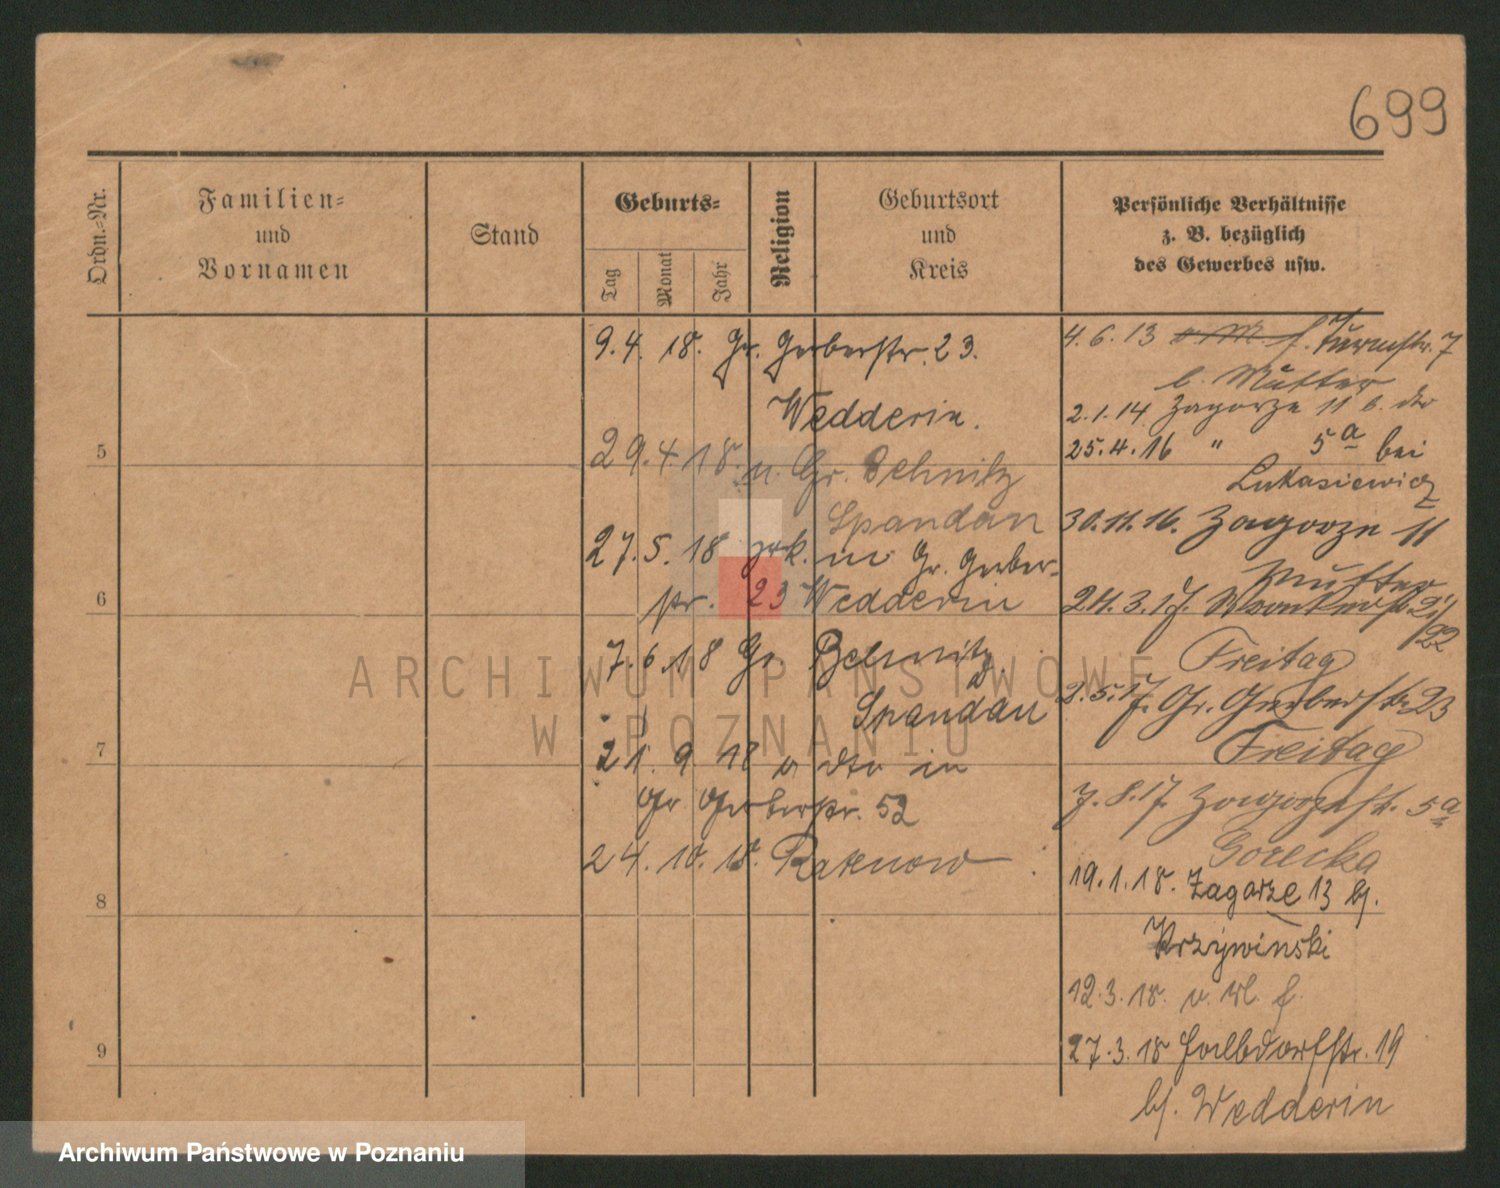 699
Ordn.-Nr.
Familien-
und
Vornamen
Stand
Geburts-
Tag
Monat
Jahr
Religion
Geburtsort
und
Kreis
Persönliche Verhältnisse
z. B. bezüglich
des Gewerbes usw.
5
6
7
8
9
9.4. 18. Gr. Gerberstr. 23.
Wedderin.
29.4.18. n. Gr. Behnitz
Spandau
27.5.18 zrk. in Gr. Gerber-
str. 23 Wedderin
7.6.18 Gr. Behnitz
Spandau
21.9 18 v dto in
Gr Gerberstr. 52
24.10.18. Ratenow
4.6.13 Turmstr. 7
b. Mutter
2.1.14 Zagorze 11 b. dto
25.4.16 " 5a bei
Lukasiewicz
30.11.16. Zagorze 11
Mutter
24.3.17. 21/22
Freitag
2.5.17. Gr. Gerberstr 23
Freitag
7.8.17. Zagorzestr. 5a
Gorecka
19.1.18. Zagorze 13 bj.
Krzywinski
12.3.18. v.
27.3.18 19
bj. Wedderin
ARCHIWUM PAŃSTWOWE
W POZNANIU
Archiwum Państwowe w Poznaniu